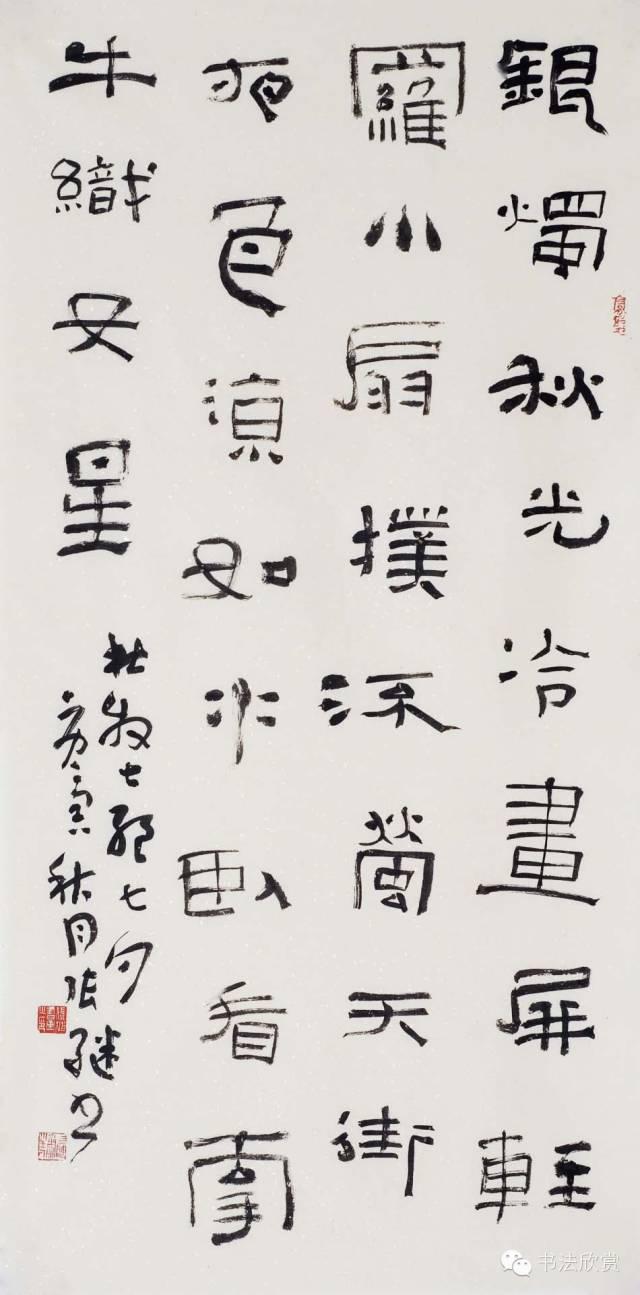 銀燭秋光冷畫屏輕
羅小扇撲流螢天街
夜色涼如水臥看牽
牛織女星
杜牧七絕七夕
庚寅秋月张继书
书法欣赏